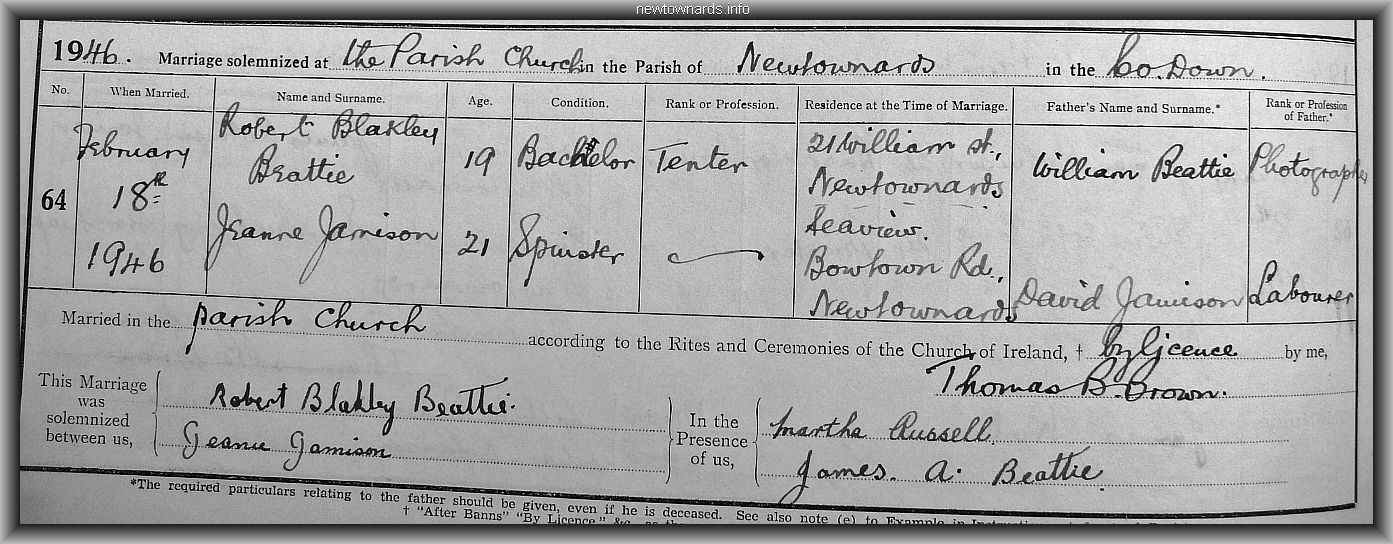 newtownards.info
1946. Marriage solemnized at the Parish Church in the Parish of Newtownards in the Co. Down.
No. When Married. Name and Surname. Age. Condition. Rank or Profession. Residence at the Time of Marriage. Father's Name and Surname.* Rank or Profession of Father.*
64
February
18th
1946
Robert Blakley
Beattie
19
Bachelor
Tenter
21 William St.,
Newtownards
William Beattie
Photographer
Jeanne Jamison
21
Spinster
Seaview.
Bowtown Rd.,
Newtownards
David Jamison
Labourer
Married in the parish Church according to the Rites and Ceremonies of the Church of Ireland, † by licence by me,
Thomas B. Brown.
This Marriage
was
solemnized
between us,
Robert Blakley Beattie.
Jeanne Jamison
In the
Presence
of us,
Martha Russell
James. A. Beattie.
*The required particulars relating to the father should be given, even if he is deceased. See also note (e) to Example in
† "After Banns" "By Licence," &c.